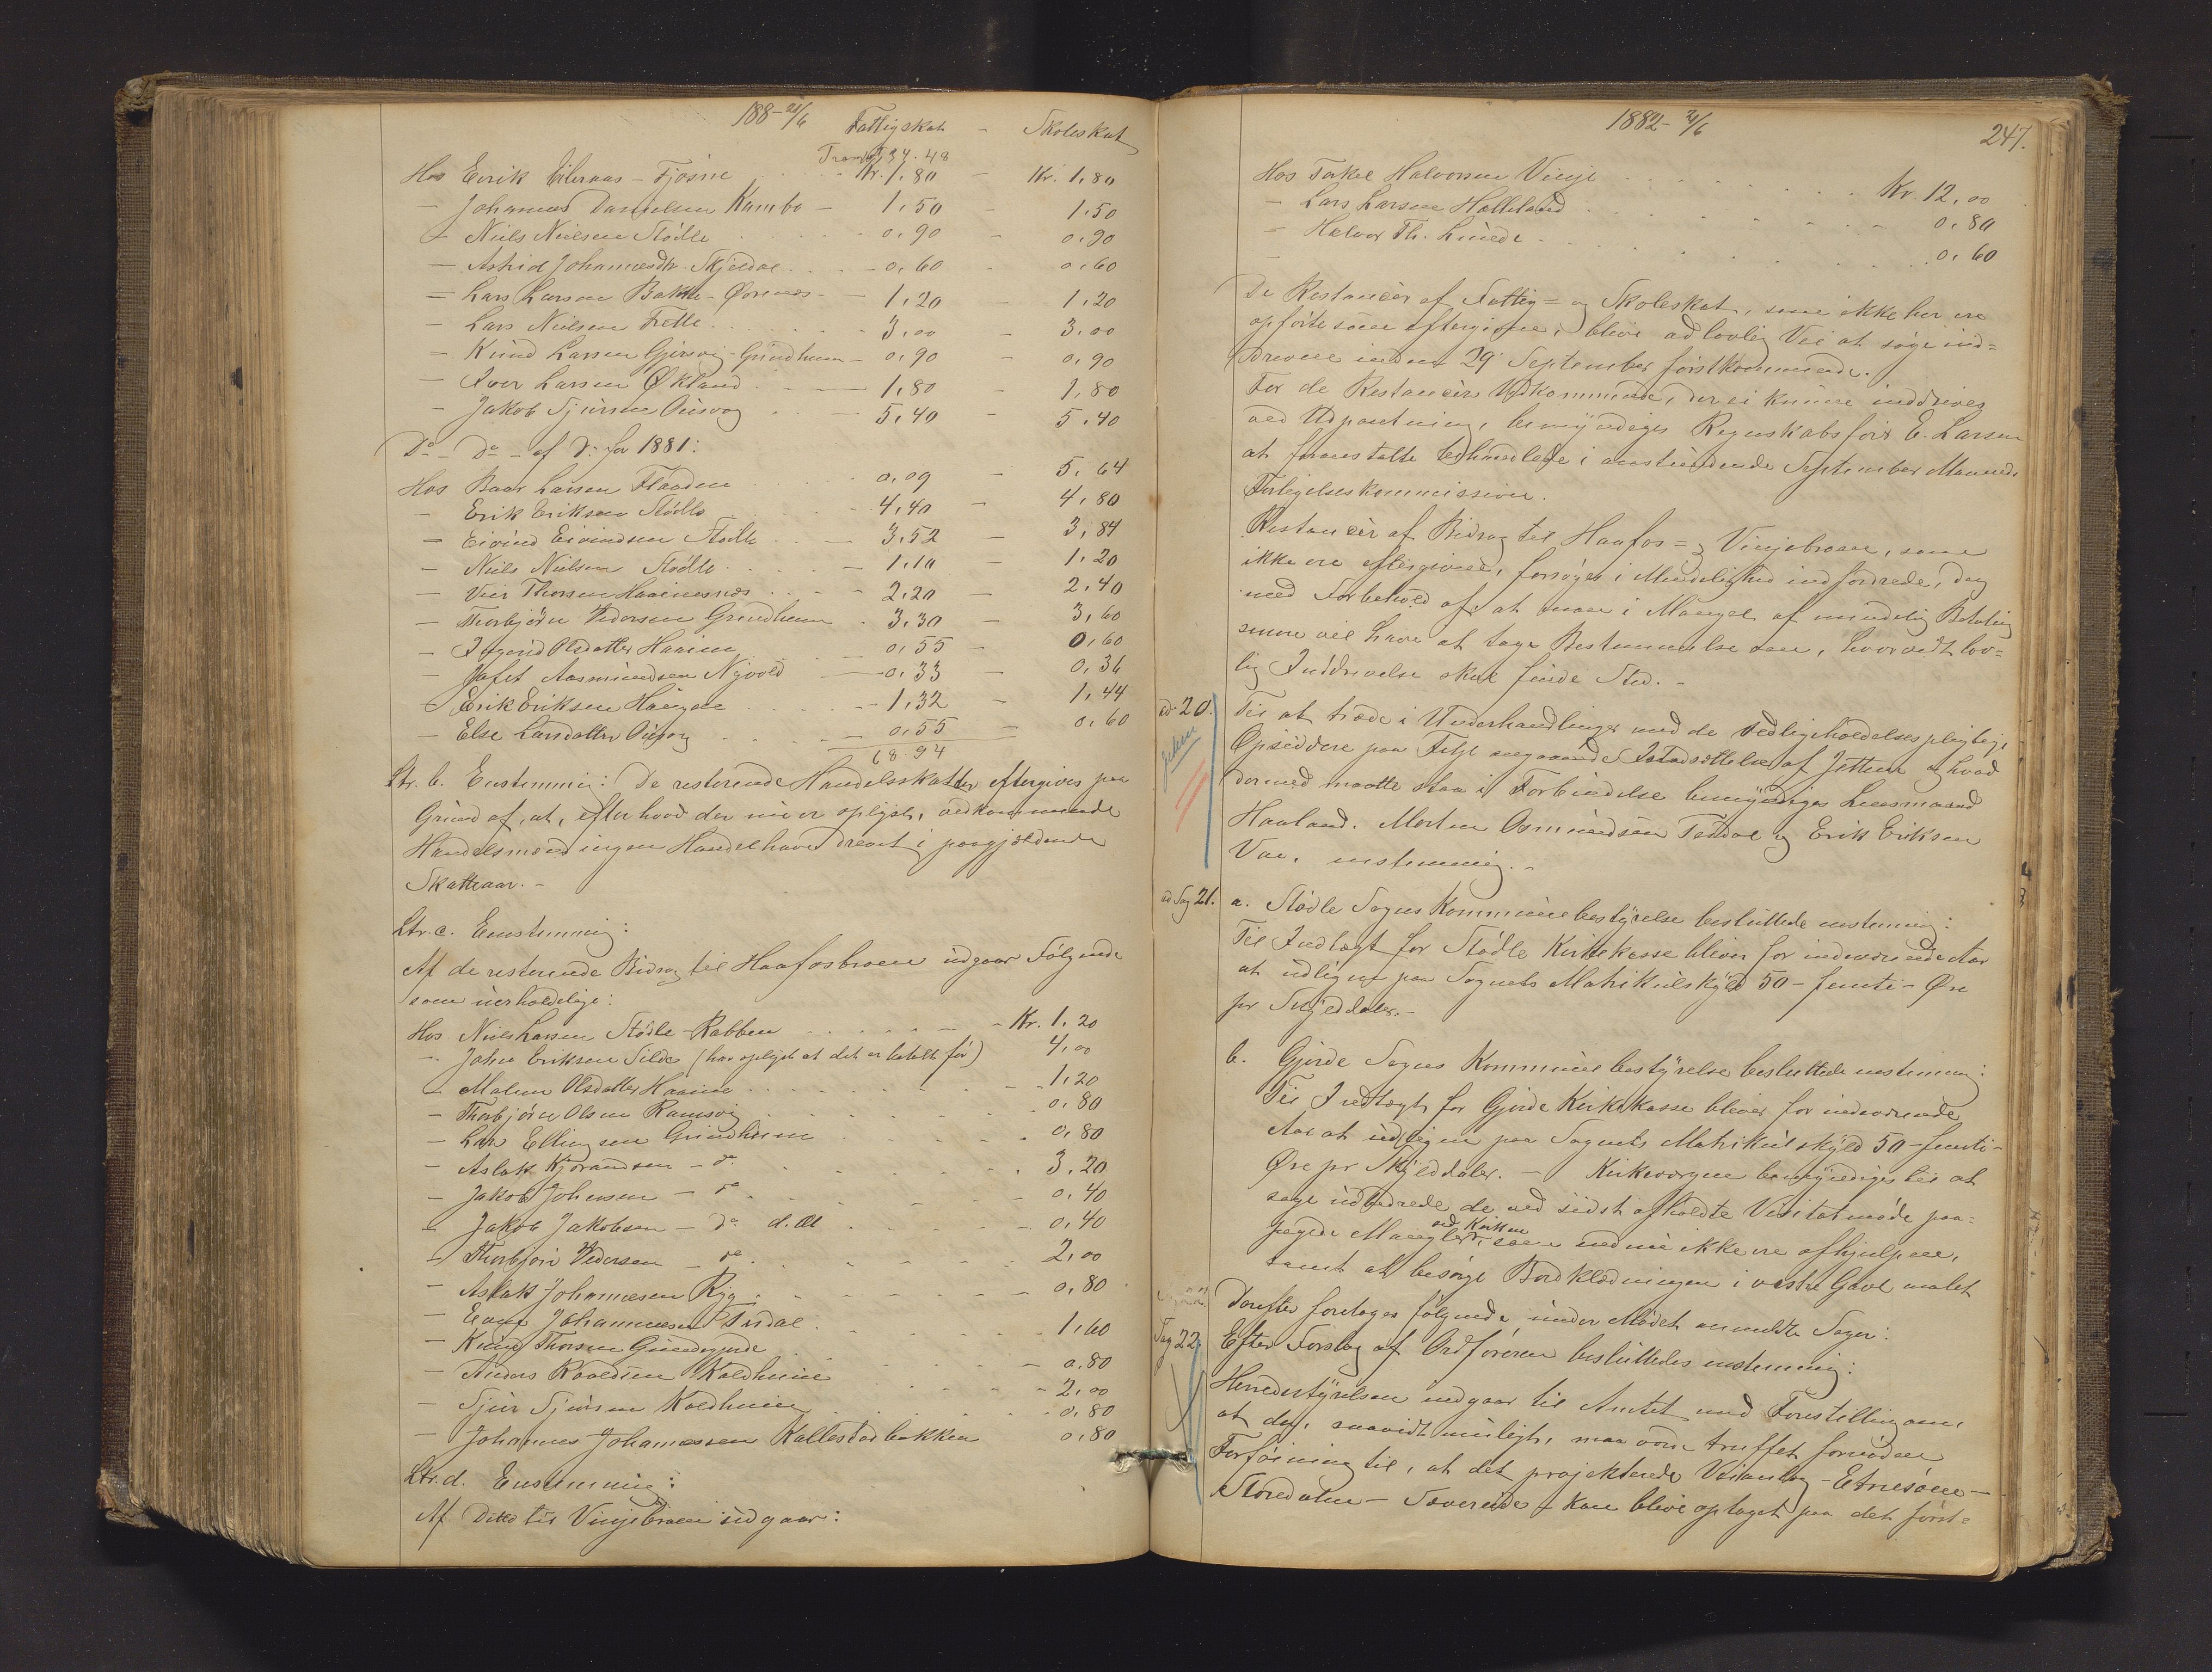 188- 21/6 Fattigskat - Skoleskat
Transp. 34.48
Hos Eirik Eileraas - Fjösne Kr. 1,80 - Kr. 1,80
- Johannes Danielsen Kambo - 1,50 - 1,50
- Niels Nielsen Stödle 0,90 - 0,90
- Astrid Johannesdtr. Skjeldal 0,60 - 0,60
- Lars Larsen Bakke - Örenes - 1,20 - 1,20
- Lars Nielsen Tætle 3,00 - 3,00
- Knud Larsen Gjersvig - Grindheim - 0,90 - 0,90
- Iver Larsen Økland 1,80 - 1,80
- Jakob Sjursen Ousvog 5,40 - 5,40
Do - Do - af Do for 1881:
Hos Baar Larsen Flaaden 0,09 - 5,64
- Erik Eriksen Stödle 4,40 - 4,80
- Eivind Eivindsen Stödle 3,52 - 3,84
- Niels Nielsen Stödle 1,10 - 1,20
- Vier Thorsen Haaenesnæs 2,20 - 2,40
- Thorbjörn Vedersen Grindheim 3,30 - 3,60
- Ingerid Olsdatter Haaim 0,55 - 0,60
- Jafet Aasmundsen Nyvold 0,33 - 0,36
- Erik Eriksen Haugen 1,32 - 1,44
- Else Larsdatter Ousvog 0,55 - 0,60
68.94
Ltr. b. Enstemmig: De resterende Handelsskatter eftergives paa
Grund af, at, efter hvad der nu er oplyst, vedkommende
Handelsmænd ingen Handel have drevet i paagjældende
Skatteaar. -
Ltr. c. Enstemmig:
Af de resterende Bidrag til Haafosbroen udgaar Følgende
som uerholdelige:
Hos Niels Larsen Stödle - Rabben Kr. 1,20
- John Eriksen Silde (har oplyst at det er betalt før) 4,00
- Malene Olsdatter Haaim 1,20
- Thorbjörn Olsen Ramsvig 0,80
- Lars Ellingsen Grindheim 0,80
- Aslak Kjörandsen - do 3,20
- Jakob Johnsen - do 0,40
- Jakob Jakobsen - do d. Æl 0,40
- Thorbjörn Vedersen - do 2,00
- Aslak Johannesen Ryg 0,80
- Einar Johannesen Tesdal 1,60
- Knud Thorsen Gundegjerde 0,80
- Anders Knudsen Koldheim 2,00
- Sjur Sjursen Koldheim 0,80
- Johannes Johannessen Kallestadbakken 0,80
Ltr. d. Enstemmig:
Af Ditto til Vinjebroen udgaar:
1882 - 21/6 247.
Hos Torkel Halvorsen Vinje Kr. 12,00
- Lars Larsen Hælleland 0,80
- Halvor Th. Lunde 0,60
De Restancer af Fattig= og Skoleskat, som ikke her ere
opførte som eftergivne, blive ad lovlig Vei at søge ind=
drevne inden 29 September førstkommende.
For de Restancers Vedkommende, der ei kunne inddrives
ved Udpantning, bemyndiges Regnskabsfører E. Larsen
at foranstalte behandlede i anstundende September Maaneds
Forligelseskommission.
Restancer af Bidrag til Haafos= og Vinjebroen, som
ikke ere eftergivne, forsøges i Mindelighed indfordrede, dog
med Forbehold af, at man i Mangel af mindelig Betaling
senere vil have at tage Bestemmelse om, hvorvidt lov=
lig Inddrivelse skal finde Sted. -
ad. 20. Til at træde i Underhandlinger med de vedligeholdelsespligtige
Opsiddere paa Fitje angaaende Istandsættelse af Jetteen og hvad
dermed maatte staa i Forbindelse bemyndiges Lensmand
Haaland, Morten Osmundsen Tesdal og Erik Eriksen
Vae, enstemmig. -
ad Sag 21. a. Stödle Sogns Kommunebestyrelse besluttede enstemmig:
Til Indtægt for Stödle Kirkekasse bliver for indeværende Aar
at udligne paa Sognets Matrikulskyld 50 - femti - Øre
pr Skylddaler. -
b. Gjerde Sogns Kommunebestyrelse besluttede enstemmig:
Til Indtægt for Gjerde Kirkekasse bliver for indeværende
Aar at udligne paa Sognets Matrikulskyld 50 - femti -
Øre pr Skylddaler. - Kirkeværgen bemyndiges til at
søge udbedrede de ved sidst afholdte Visitatmøde paa=
pegede Mangler ved Kirken, som endnu ikke ere afhjulpne,
samt at besørge Bordklædningen i vestre Gavl malet
Derefter foretoges følgende under Mødet anmeldte Sager:
Sag 22. Efter Forslag af Ordføreren besluttedes enstemmig:
Herredsstyrelsen indgaar til Amtet med Forestilling om,
at der, saavidt muligt, maa vorde truffet fornøden
Forføining til, at det projekterede Veianlæg - Etnesøen -
Stordalen - Søverende - kan blive optaget paa det først=